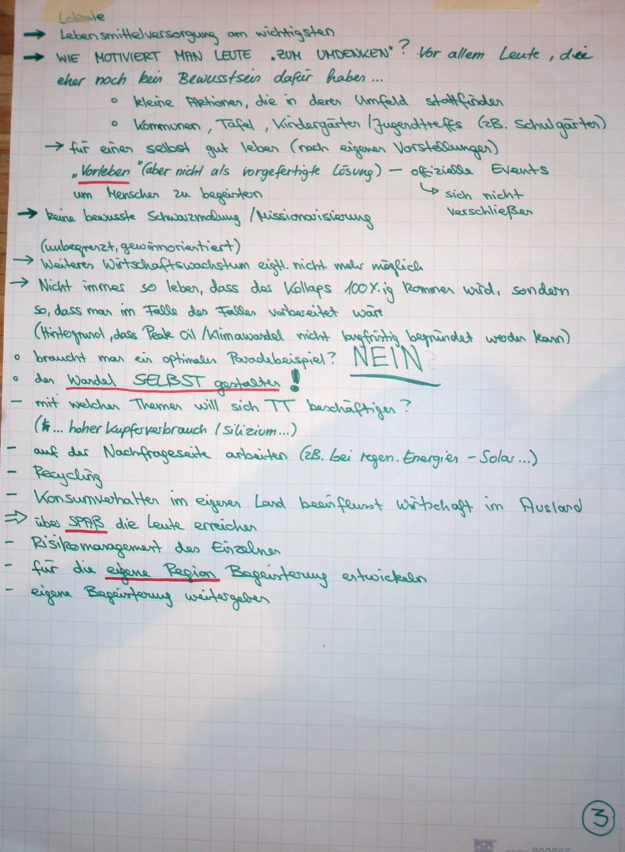 Lokale
→ Lebensmittelversorgung am wichtigsten
→ WIE MOTIVIERT MAN LEUTE „ZUM UMDENKEN"? Vor allem Leute, die
eher noch kein Bewusstsein dafür haben...
○ kleine Aktionen, die in deren Umfeld stattfinden
○ Kommunen, Tafel, Kindergärten/Jugendtreffs (zB. Schulgärten)
→ für einen selbst gut leben (nach eigenen Vorstellungen)
„Vorleben" (aber nicht als vorgefertigte Lösung) – offizielle Events
um Menschen zu begeistern ↳ sich nicht
verschließen
→ keine bewusste Schwarzmalung/Missionarisierung
(unbegrenzt, gewinnorientiert)
→ Weiteres Wirtschaftswachstum eigtl. nicht mehr möglich
→ Nicht immer so leben, dass der Kollaps 100%ig kommen wird, sondern
so, dass man im Falle des Falles vorbereitet wäre
(Hintergrund, dass Peak Oil/Klimawandel nicht langfristig begründet werden kann)
○ braucht man ein optimales Paradebeispiel? NEIN
○ den Wandel SELBST gestalten!
– mit welchen Themen will sich TT beschäftigen?
(... hoher Kupferverbrauch/Silizium...)
– auf der Nachfrageseite arbeiten (zB. bei regen. Energien – Solar...)
– Recycling
– Konsumverhalten im eigenen Land beeinflusst Wirtschaft im Ausland
⇒ über SPAß die Leute erreichen
– Risikomanagement des Einzelnen
– für die eigene Region Begeisterung entwickeln
– eigene Begeisterung weitergeben
3